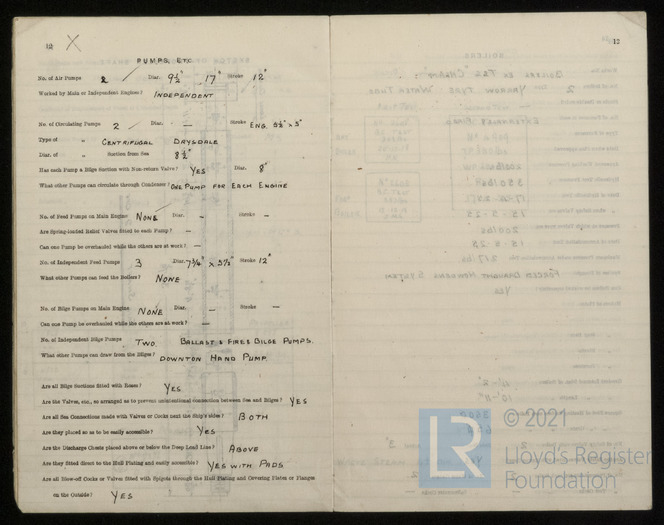 12 X
PUMPS, ETC.
No. of Air Pumps 2 Diar. 9½" 17" Stroke 12"
Worked by Main or Independent Engines? INDEPENDENT
No. of Circulating Pumps 2 Diar. — Stroke ENG. 5½" x 5"
Type of " CENTRIFUGAL DRYSDALE
Diar. of " Suction from Sea 8½"
Has each Pump a Bilge Suction with Non-return Valve? YES Diar. 8"
What other Pumps can circulate through Condenser? ONE PUMP FOR EACH ENGINE
No. of Feed Pumps on Main Engine NONE Diar. — Stroke —
Are Spring-loaded Relief Valves fitted to each Pump? —
Can one Pump be overhauled while the others are at work? —
No. of Independent Feed Pumps 3 Diar. 7¾" x 5½" Stroke 12"
What other Pumps can feed the Boilers? NONE
No. of Bilge Pumps on Main Engine NONE Diar. — Stroke —
Can one Pump be overhauled while the others are at work? —
No. of Independent Bilge Pumps TWO. BALLAST & FIRE & BILGE PUMPS.
What other Pumps can draw from the Bilges? DOWNTON HAND PUMP.
Are all Bilge Suctions fitted with Roses? YES
Are the Valves, etc., so arranged as to prevent unintentional connection between Sea and Bilges? YES
Are all Sea Connections made with Valves or Cocks next the Ship's sides? BOTH
Are they placed so as to be easily accessible? YES
Are the Discharge Chests placed above or below the Deep Load Line? ABOVE
Are they fitted direct to the Hull Plating and easily accessible? YES WITH PADS
Are all Blow-off Cocks or Valves fitted with Spigots through the Hull Plating and Covering Plates or Flanges
on the Outside? YES
12
LR
© 2021
Lloyd's Register
Foundation